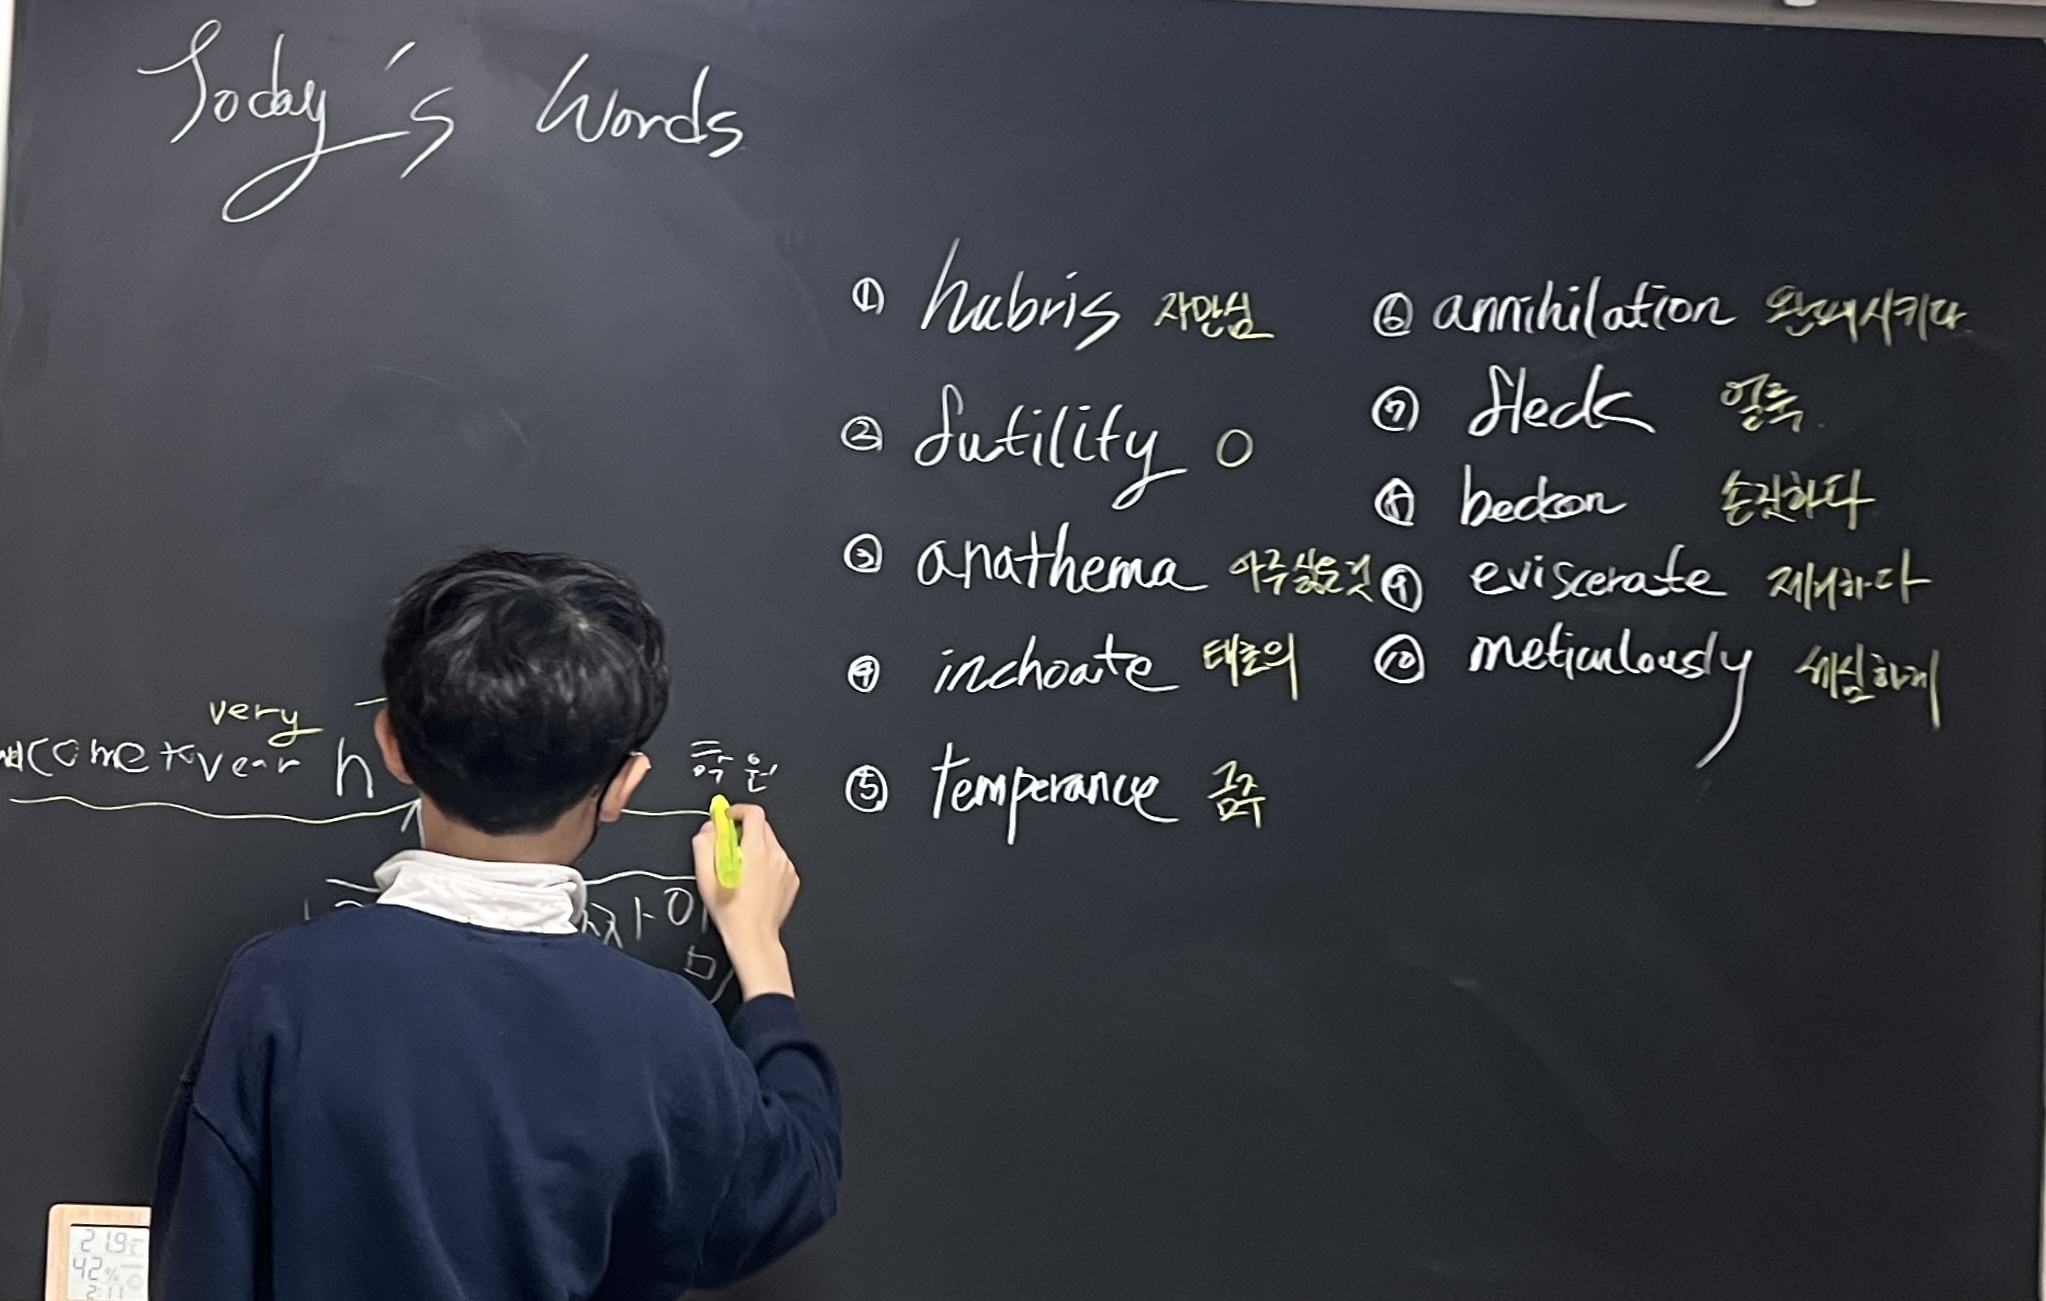 Today's Words
① hubris 자만심
② futility O
③ anathema 아주싫은것
④ inchoate 태초의
⑤ temperance 금주
⑥ annihilation 완패시키다
⑦ fleck 얼룩
⑧ beckon 손짓하다
⑨ eviscerate 제거하다
⑩ meticulously 세심하게
very
학원
21.9℃
42%
2:11